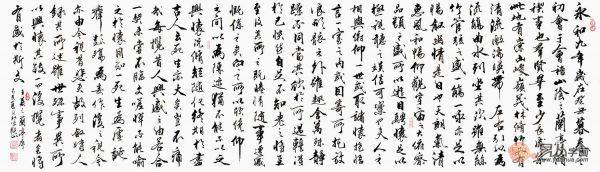 永和九年歲在癸丑暮春之
初會于會稽山陰之蘭亭脩
禊事也羣賢畢至少長咸集
此地有崇山峻嶺茂林脩竹又有清
流激湍映帶左右引以為
流觴曲水列坐其次雖無絲
竹管弦之盛一觴一詠亦足以
暢敘幽情是日也天朗氣清
惠風和暢仰觀宇宙之大俯察
品類之盛所以遊目騁懷足以
極視聽之娛信可樂也夫人之
相與俯仰一世或取諸懷抱悟
言一室之內或因寄所託放
浪形骸之外雖趣舍萬殊靜
躁不同當其欣於所遇暫得
於己快然自足不知老之將
至及其所之既惓情隨事遷感
慨係之矣向之所欣俛仰
之間以為陳迹猶不能不以之
興懷況脩短隨化終期於盡
古人云死生亦大矣豈不痛
哉每攬昔人興感之由若合一契未
嘗不臨文嗟悼不能喻
之於懷固知一死生為虛誕
齊彭殤為妄作後之視今
亦由今之視昔悲夫故列敘時人
錄其所述雖世殊事異所
以興懷其致一也後之攬者亦將
有感於斯文